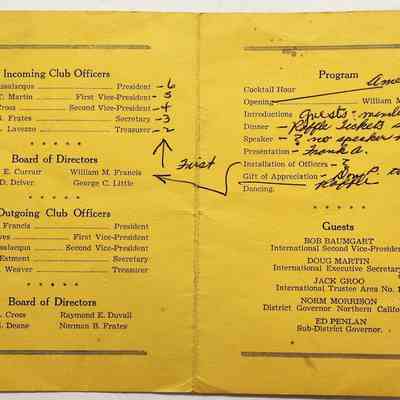 Incoming Club Officers
President -6
T. Martin First Vice-President -5
Cross Second Vice-President -4
Frates Secretary -3
Lavezzo Treasurer -2
First
Board of Directors
E. Curran William M. Francis
D. Driver George C. Little
Outgoing Club Officers
Francis President
First Vice-President
Second Vice-President
Estment Secretary
Weaver Treasurer
Board of Directors
Cross Raymond E. Duvall
Deane Norman B. Frates
Program
Cocktail Hour
Opening William M
Introductions Guests - 
Dinner - Raffle Tickets
Speaker - ? no speaker
Presentation - Frank A.
Installation of Officers - ?
Gift of Appreciation -
Dancing.
Guests
BOB BAUMGART
International Second Vice-Presiden
DOUG MARTIN
International Executive Secretary
JACK GROO
International Trustee Area No. 1
NORM MORRISON
District Governor Northern Californ
ED PENLAN
Sub-District Governor.